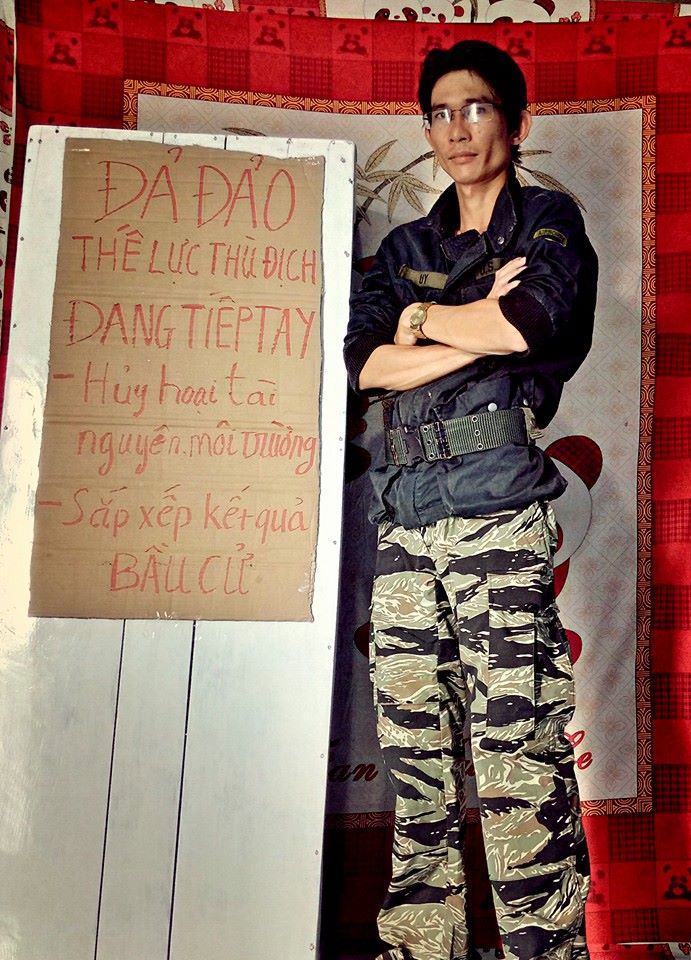 ĐẢ ĐẢO
THẾ LỰC THÙ ĐỊCH
ĐANG TIẾP TAY
- Hủy hoại tài
nguyên. môi trường
- Sắp xếp kết quả
BẦU CỬ
UY
U.S